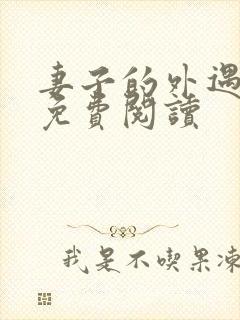 妻子的外遇
免費閱讀
我是不喫果凍